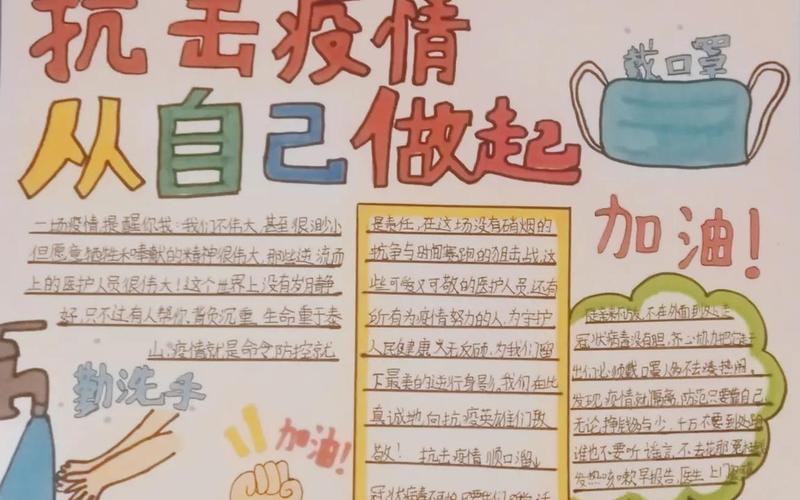 抗击疫情
从自己做起
戴口罩
加油!
一场疫情,提醒你我:我们不伟大,甚至很渺小
但愿意牺牲和奉献的精神很伟大,那些逆流而
上的医护人员很伟大!这个世界上没有岁月静
好,只不过有人帮你,背负沉重.生命重于泰
山.疫情就是命令防控就
是责任,在这场没有硝烟的
抗争与时间赛跑的狙击战,这
些可爱又可敬的医护人员,还有
所有为疫情努力的人,为守护
人民健康义无反顾,为我们留
下最美的逆行身影,我们在此
真诚地,向抗疫英雄们致
敬! 抗击疫情顺口溜
冠状病毒不可怕
不在外面到处走
冠状病毒没有胆,齐心协力把它
出们必须戴口罩人多不去凑热闹.
发现疫情就 防范只要靠自己
无论挣钱多与少,千万不要到处跑
谁也不要听谣言,不去花那
发热咳嗽早报告,医生上门
勤洗手
加油!